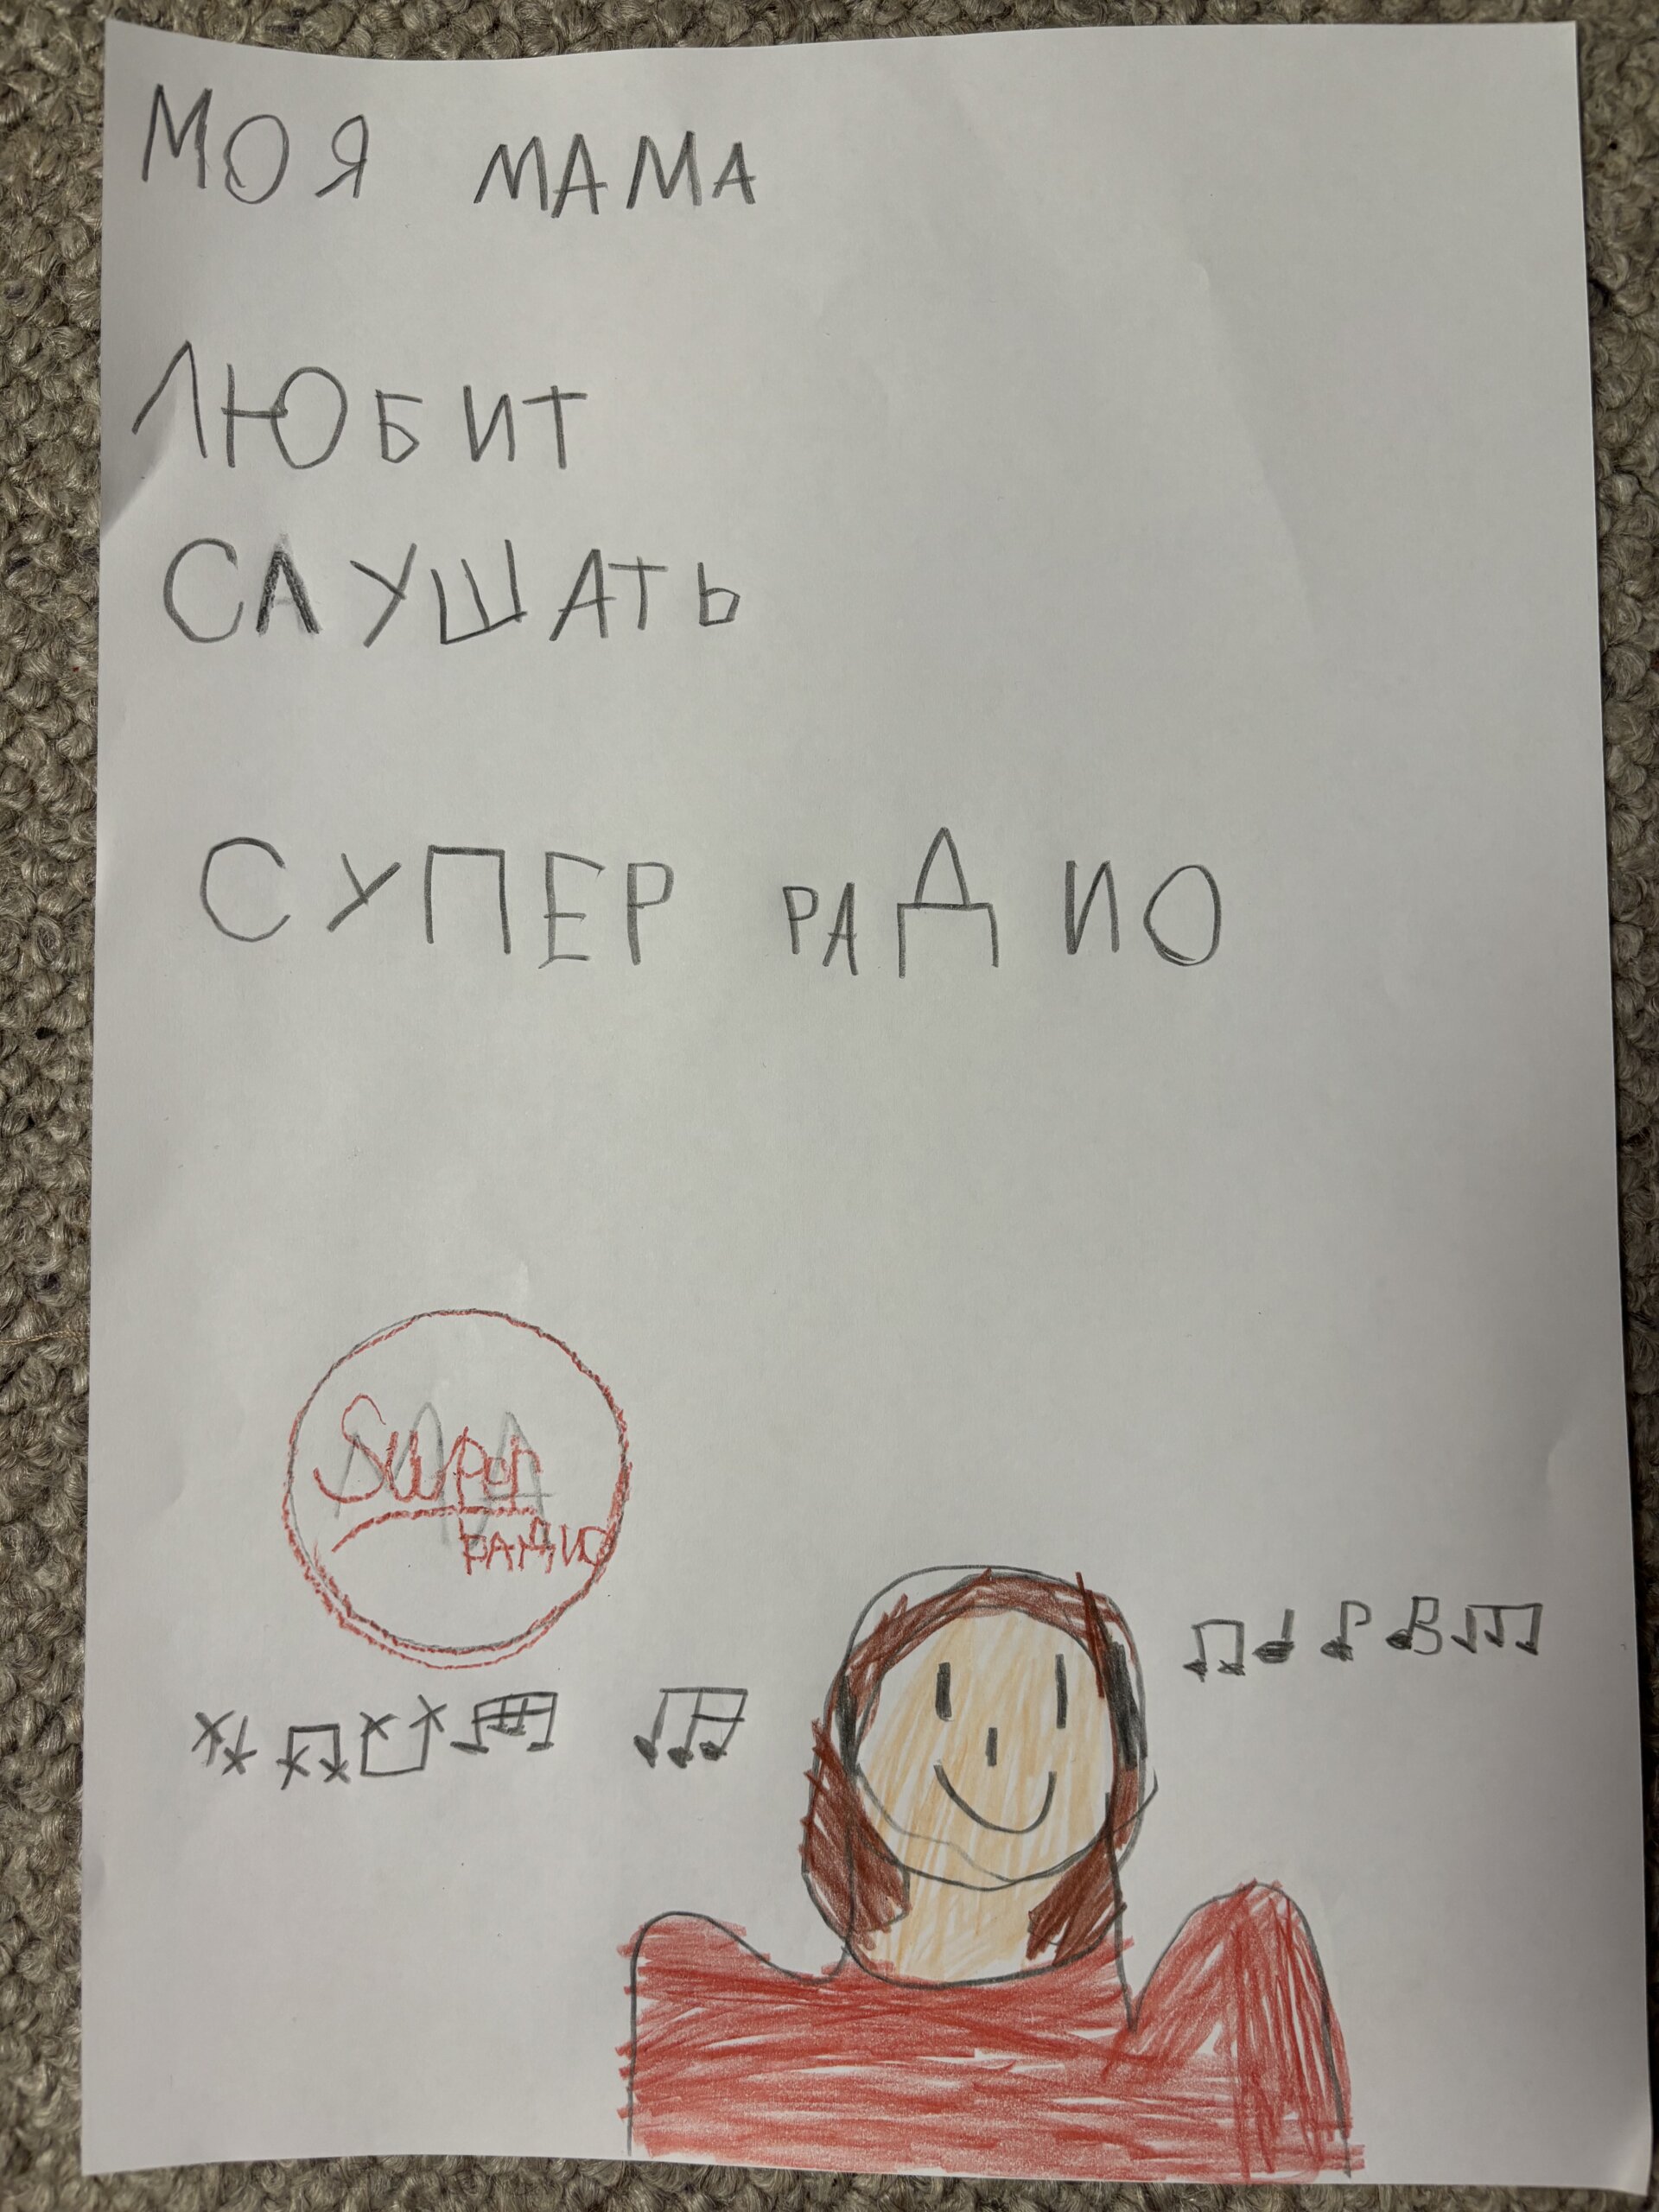 МОЯ МАМА
ЛЮБИТ
СЛУШАТЬ
СУПЕР РАДИО
Super
РАДИО